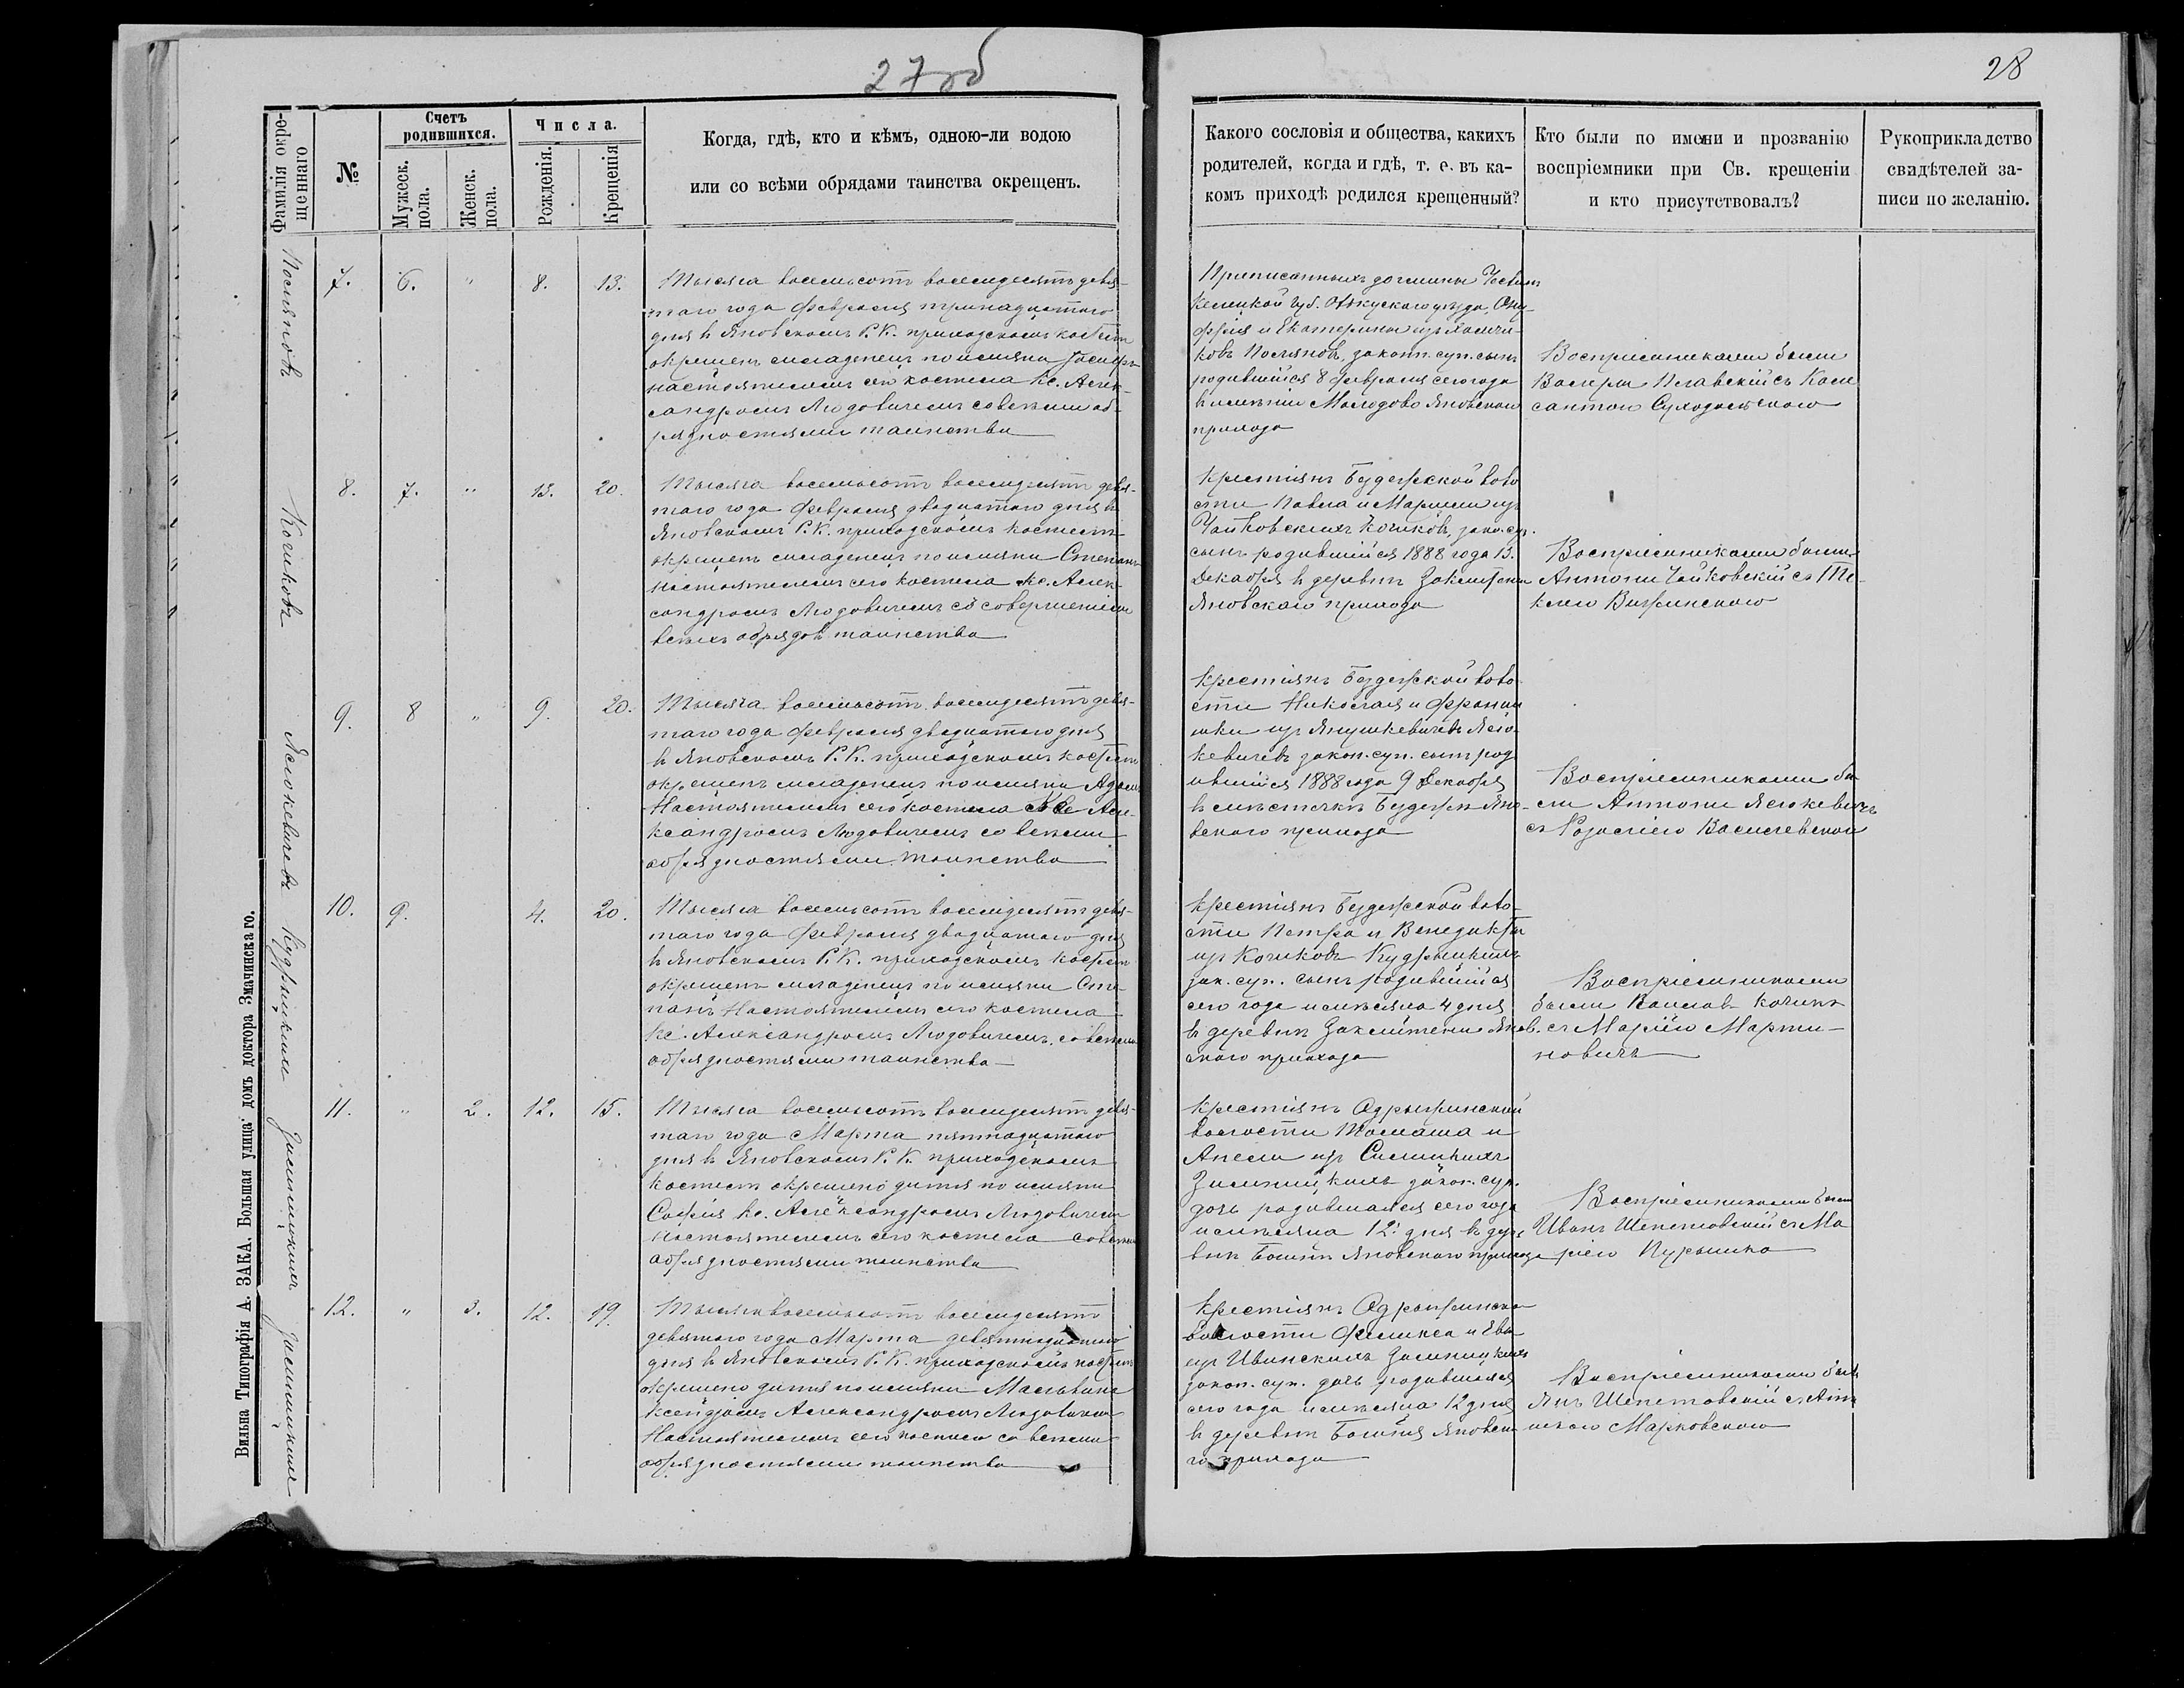 27об
28
Фамилія окрещеннаго
№
Счетъ родившихся.
Мужеск. пола.
Женск. пола.
Числа.
Рожденія.
Крещенія
Когда, гдѣ, кто и кѣмъ, одною-ли водою
или со всѣми обрядами таинства окрещенъ.
Какого сословія и общества, какихъ
родителей, когда и гдѣ, т. е. въ ка-
комъ приходѣ родился крещенный?
Кто были по имени и прозванію
воспріемники при Св. крещеніи
и кто присутствовалъ?
Рукоприкладство
свидѣтелей за-
писи по желанію.
7. 6. " 8. 13.
Тысяча восемьсотъ восемдесятъ девя-
таго года февраля тринадцатого
дня в Яновскомъ Р.К. приходскомъ костелѣ
окрещенъ младенецъ по имяни
настоятелемъ сего костела Кс. Алек-
сандромъ Людовичемъ со всѣми об-
рядностями таинства
Приписанныхъ до гмины
Келецкой губ. уѣзда, Ону-
фрія и Екатерины изъ
ковъ закон. суп. сынъ
родившійся 8 февраля сего года
в имѣніи Молодово Яновскаго
прихода
Воспріемниками были
Валеры съ Кон-
8. 7. " 13. 20.
Тысяча восемьсотъ восемдесятъ девя-
таго года февраля двадцатого дня в
Яновскомъ Р.К. приходскомъ костелѣ
окрещенъ младенецъ по имяни Степанъ
настоятелемъ сего костела Кс. Алек-
сандромъ Людовичемъ съ совершеніемъ
всѣхъ обрядовъ таинства
Кочиковъ
Крестіянъ Бездежской воло
сти Павла и Маріи изъ
Чайковскихъ Кочиковъ, зако. суп.
сынъ родившійся 1888 года 13.
Декабря в деревнѣ
Яновскаго прихода
Воспріемниками были
Антоны Чайковскій съ Те-
9. 8 " 9. 20.
Тысяча восемьсотъ восемдесятъ девя-
таго года февраля двадцатого дня
в Яновскомъ Р.К. приходскомъ костелѣ
окрещенъ младенецъ по имяни Адамъ
Настоятелемъ сего костела Але-
ксандромъ Людовичемъ со всѣми
обрядностями таинства
Крестіянъ Бездежской воло
сти Николая и Францы
шки изъ Янушкевичевъ
кевичевъ закон. суп. сынъ род
ившійся 1888 года 9 Декабря
в мѣстечкѣ Бездежѣ Яно-
вского прихода
Воспріемниками бы-
ли Антоны
съ Розаліею Василевскою
10. 9. 4. 20.
Тысяча восемьсотъ восемдесятъ девя-
таго года февраля двадцатого дня
в Яновскомъ Р.К. приходскомъ костелѣ
окрещенъ младенецъ по имяни Сте-
панъ Настоятелемъ сего костела
Кс. Александромъ Людовичемъ, со всѣми
обрядностями таинства
Крестіянъ Бездежской воло-
сти Петра и Бенедикты
изъ Кочиковъ Кудрицкихъ
зак. суп. сынъ родившійся
сего года и мѣсяца 4 дня
в деревнѣ Янов-
ского прихода
Воспріемниками
были Вацлав Кочикъ
съ Маріею Марти-
новичъ
11. " 2. 12. 15.
Тысяча восемьсотъ восемдесятъ девя-
таго года Марта пятнадцатого
дня в Яновскомъ Р.К. приходскомъ
костелѣ окрещено дитя по имяни
Софія Кс. Александромъ Людовичемъ
настоятелемъ сего костела со всѣми
обрядностями таинства
Крестіянъ Одрыжинской
волости Томаша и
Анели изъ
закон. суп.
дочь родившаяся сего года
и мѣсяца 12. дня в дере
внѣ Яновского прихода
Воспріемниками были
Иванъ Шепетовскій съ Ма
ріею
12. " 3. 12. 19.
Тысяча восемьсотъ восемдесятъ
девятого года Марта девятнадцатого
дня в Яновскомъ Р.К. приходскомъ костелѣ
окрещено дитя по имяни Мальвина
Ксендзомъ Александромъ Людовичемъ
Настоятелемъ сего костела со всѣми
обрядностями таинства
Крестіянъ Одрыжинско
волости Феликса и Евы
изъ Ивинскихъ
закон. суп. дочь родившаяся
сего года и мѣсяца 12 дня
в деревнѣ Яновска
го прихода
Воспріемниками были
Янъ Шепетовскій съ
Марковскою
Вильна Типографія А. ЗАКА, Большая улица домъ доктора Змачинскаго.